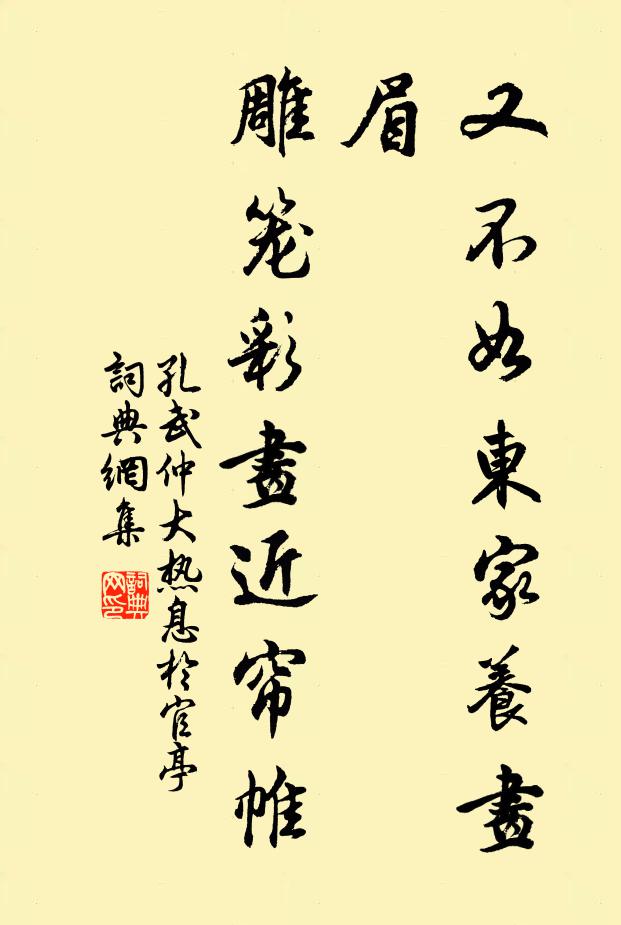 又不如東家養畫
眉
雕笼彩畫近帘帷
孔武仲大热息於官亭
詞典網集
詞典
网印